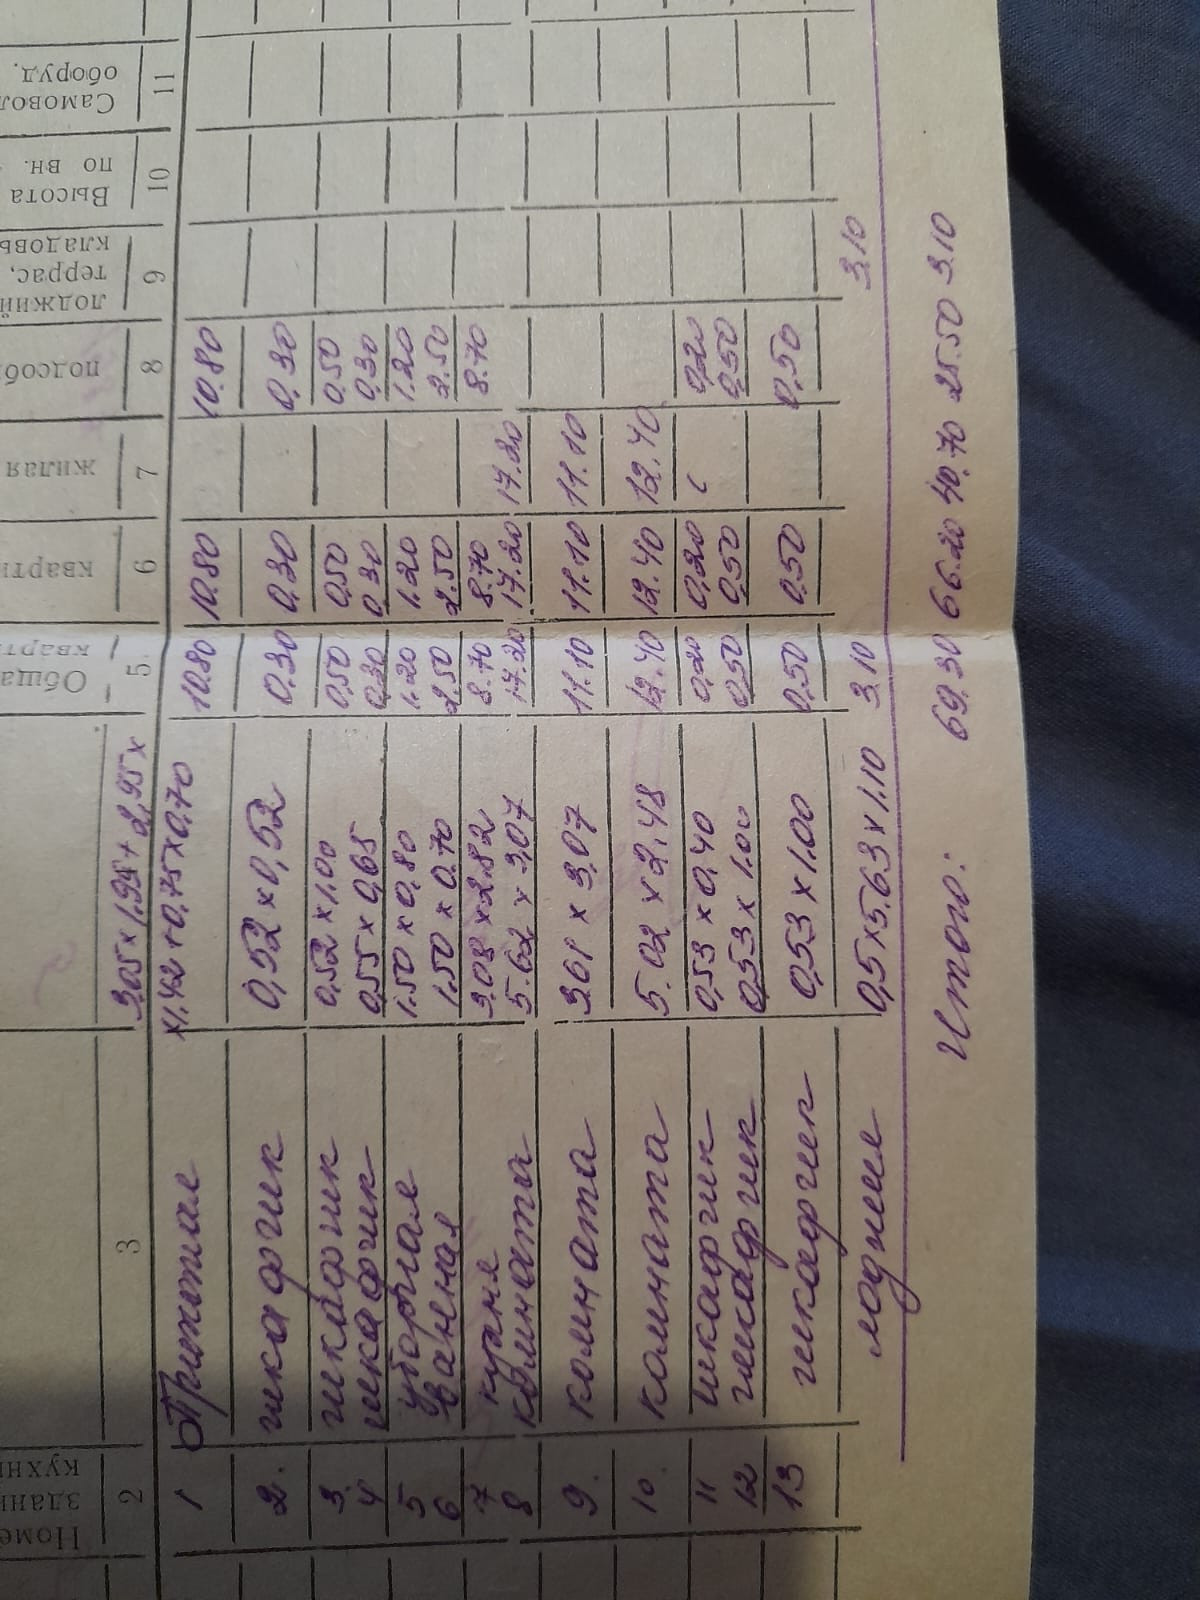 Номе
здани
кухни
Обща
кварти
кварти
жилая
подсоб
лоджий
террас,
кладовы
Высота
по вн.
Самовол
оборуд.
2 3 5 6 7 8 9 10 11
3,05x1,95+2,95x
1 Прихожая x1.42+0,75x0,70 10.80 10.80 10.80
2. шкафчик 0,52x0,52 0,30 0,30 0,30
3. шкафчик 0,52x1.00 0,50 0,50 0,50
4 шкафчик 0,55x0,65 0,30 0,30 0,30
5 уборная 1.50x0,80 1.20 1.20 1.20
6 Ванная 1,50x0,70 2.50 2.50 2.50
7 кухня 3,08x2.82 8.70 8.70 8.70
8 комната 5.62x3,07 17.20 17.20 17.20
9. комната 3.61x3,07 11.10 11.10 11.10
10. комната 5.02x2.48 12.40 12.40 12.40
11 шкафчик 0,53x0,40 0,20 0,20 0,20
12 шкафчик 0,53x1.00 0,50 0,50 0,50
13 шкафчик 0,53x1.00 0,50 0,50 0,50
лоджия 0,5x5.63x1.10 3,10 3.10
Итого: 69.30 66.20 40.70 25.50 3.10